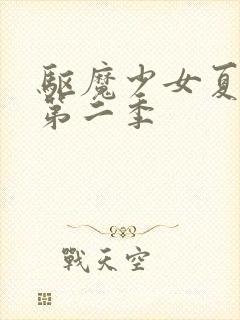 驱魔少女夏
第二季
戰天空